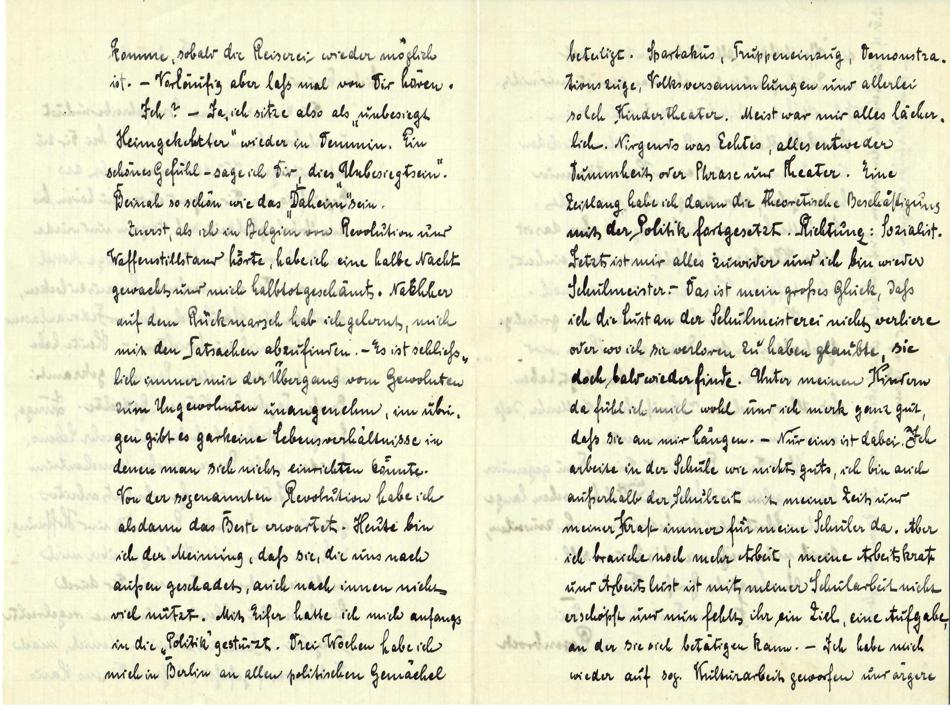 komme, sobald die Reiserei wieder möglich
ist. – Vorläufig aber laß mal von Dir hören.
Ich? – Ja, ich sitze also als „unbesiegt
Heimgekehrter" wieder in Demmin. Ein
schönes Gefühl – sage ich Dir, dies „Unbesiegtsein".
Beinah so schön wie das „Daheim"sein.
Zuerst, als ich in Belgien von Revolution und
Waffenstillstand hörte, habe ich eine halbe Nacht
gewacht und mich halbtotgeschämt. Nachher
auf dem Rückmarsch hab ich gelernt, mich
mit den Tatsachen abzufinden. – Es ist schließ-
lich immer nur der Übergang vom Gewohnten
zum Ungewohnten unangenehm, im übri-
gen gibt es garkeine Lebensverhältnisse in
denen man sich nicht einrichten könnte.
Von der sogenannten Revolution habe ich
alsdann das Beste erwartet. Heute bin
ich der Meinung, daß sie, die uns nach
außen geschadet, auch nach innen nicht
viel nützt. Mit Eifer hatte ich mich anfangs
in die „Politik" gestürzt. Drei Wochen habe ich
mich in Berlin an allen politischen Gemächel
beteiligt. Spartakus, Truppeneinzug, Demonstra-
tionszüge, Volksversammlungen und allerlei
solch Kindertheater. Meist war mir alles lächer-
lich. Nirgends was Echtes, alles entweder
Dummheit oder Phrase und Theater. Eine
Zeitlang habe ich dann die theoretische Beschäftigung
mit der Politik fortgesetzt. Richtung: Sozialist.
Jetzt ist mir alles zuwider und ich bin wieder
Schulmeister – Das ist mein großes Glück, daß
ich die Lust an der Schulmeisterei nicht verliere
oder wo ich sie verloren zu haben glaubte, sie
doch bald wiederfinde. Unter meinen Kindern
da fühl ich mich wohl und ich merk ganz gut,
daß sie an mir hängen. – Nur eins ist dabei. Ich
arbeite in der Schule wie nichts guts, ich bin auch
außerhalb der Schulzeit mit meiner Zeit und
meiner Kraft immer für meine Schüler da. Aber
ich brauche noch mehr Arbeit, meine Arbeitskraft
und Arbeitslust ist mit meiner Schularbeit nicht
erschöpft und nun fehlt ihr ein Ziel, eine Aufgabe,
an der sie sich betätigen kann. – Ich habe mich
wieder auf sog. Kulturarbeit geworfen und ärgere